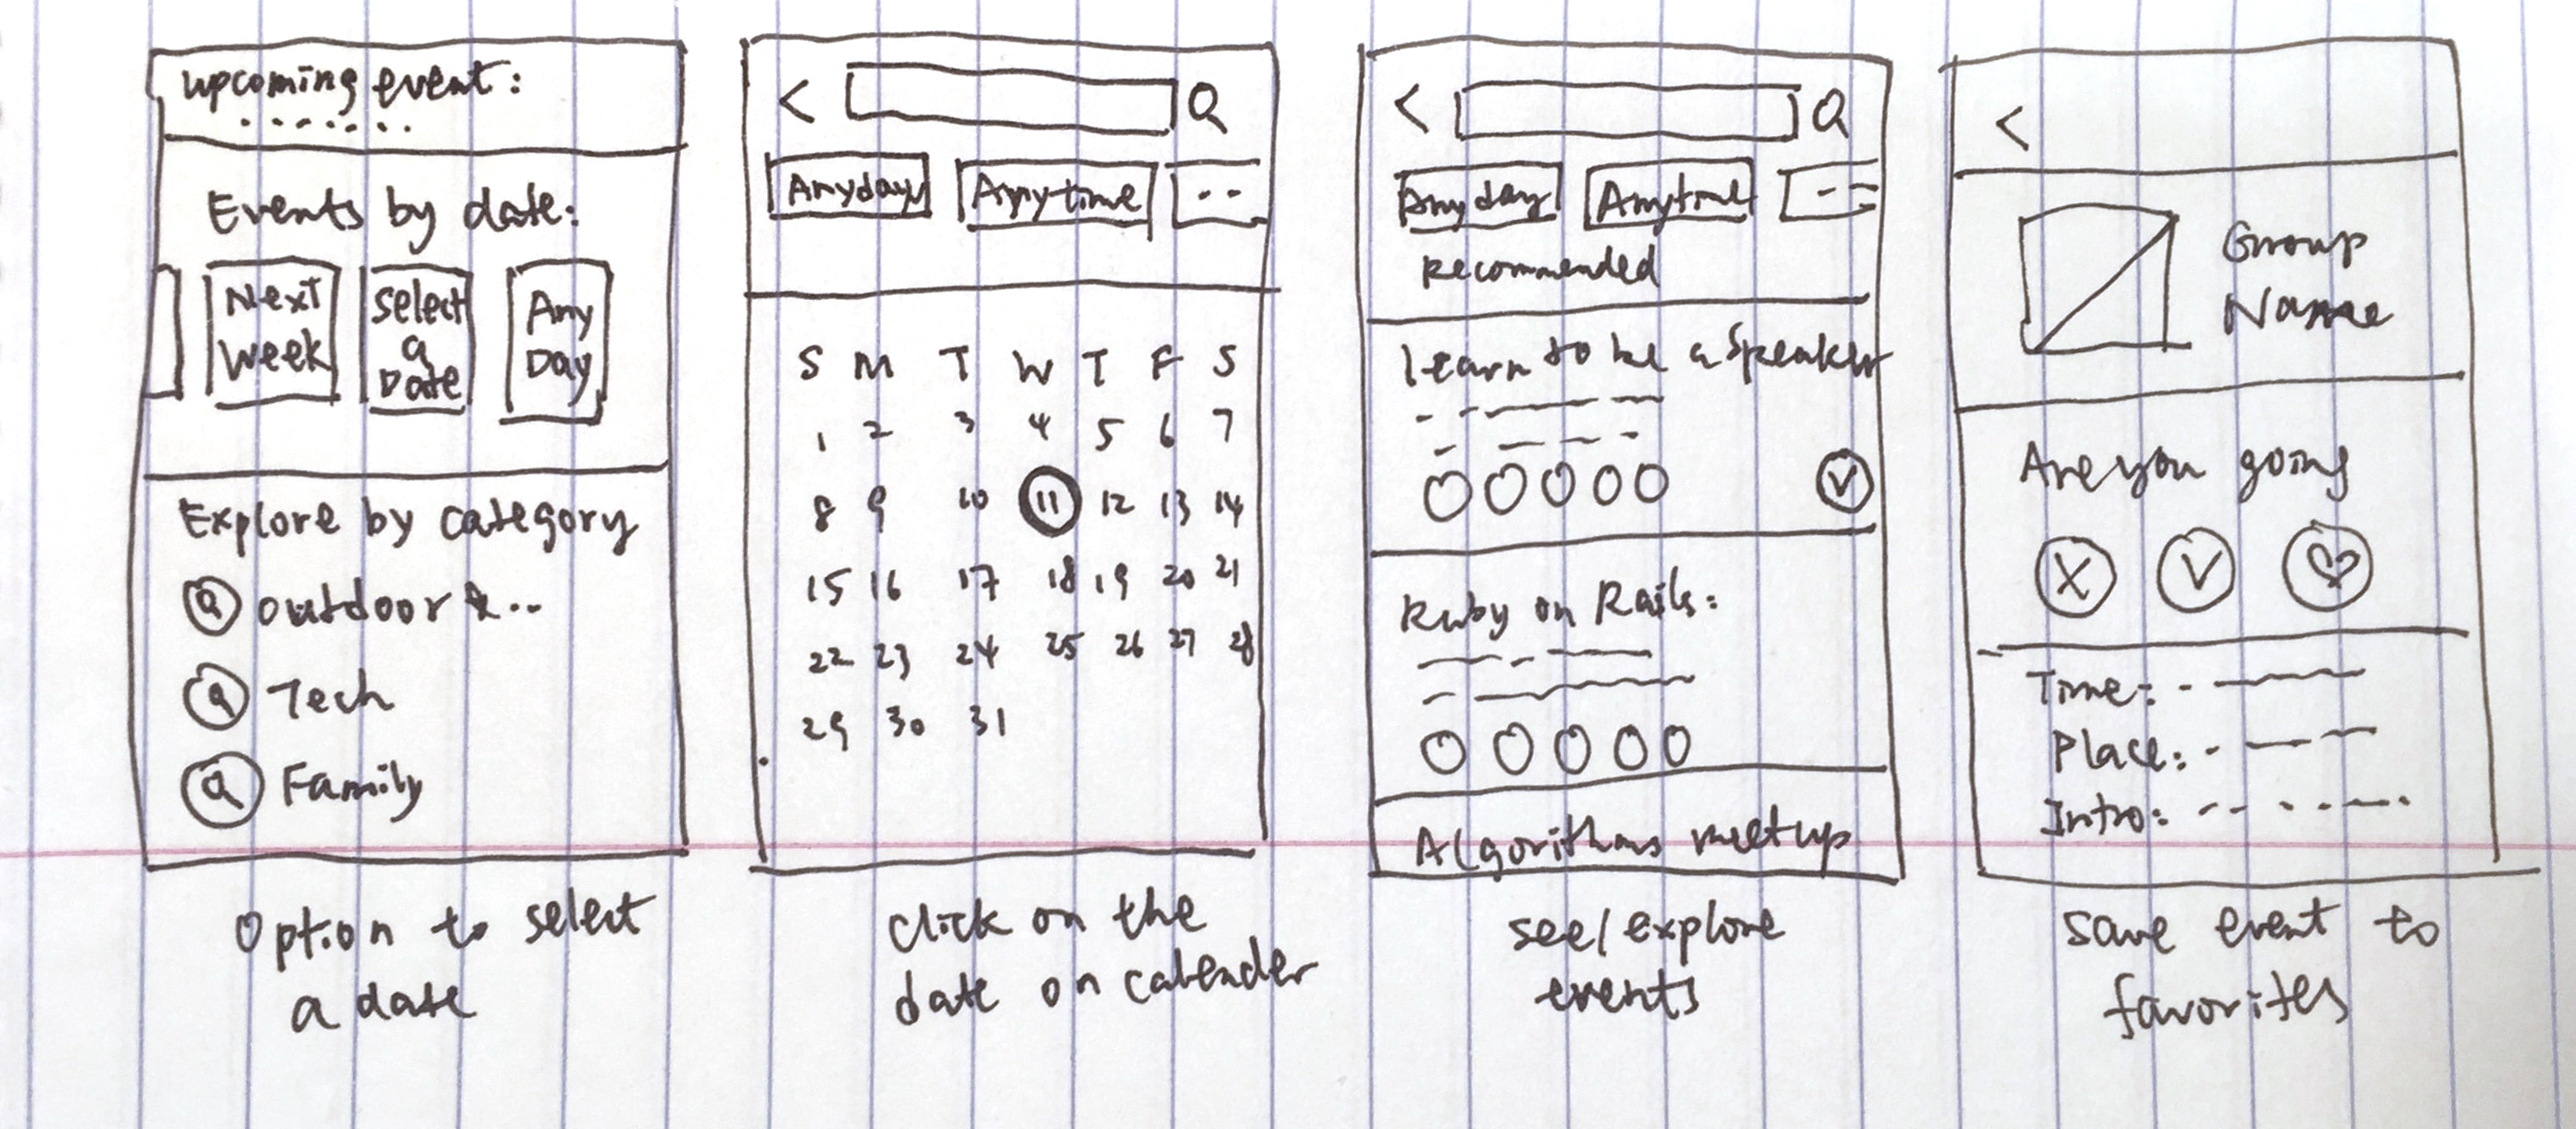 upcoming event:
Events by date:
Next
Week
Select
a
Date
Any
Day
Explore by category
outdoor & ..
Tech
Family
Option to select
a date
<
Anyday
Anytime
S M T W T F S
1 2 3 4 5 6 7
8 9 10 11 12 13 14
15 16 17 18 19 20 21
22 23 24 25 26 27 28
29 30 31
click on the
date on calender
<
Anyday
Anytime
Recommended
Learn to be a speaker
Ruby on Rails:
Algorithms meetup
see/explore
events
<
Group
Name
Are you going
Time:
Place:
Intro:
save event to
favorites